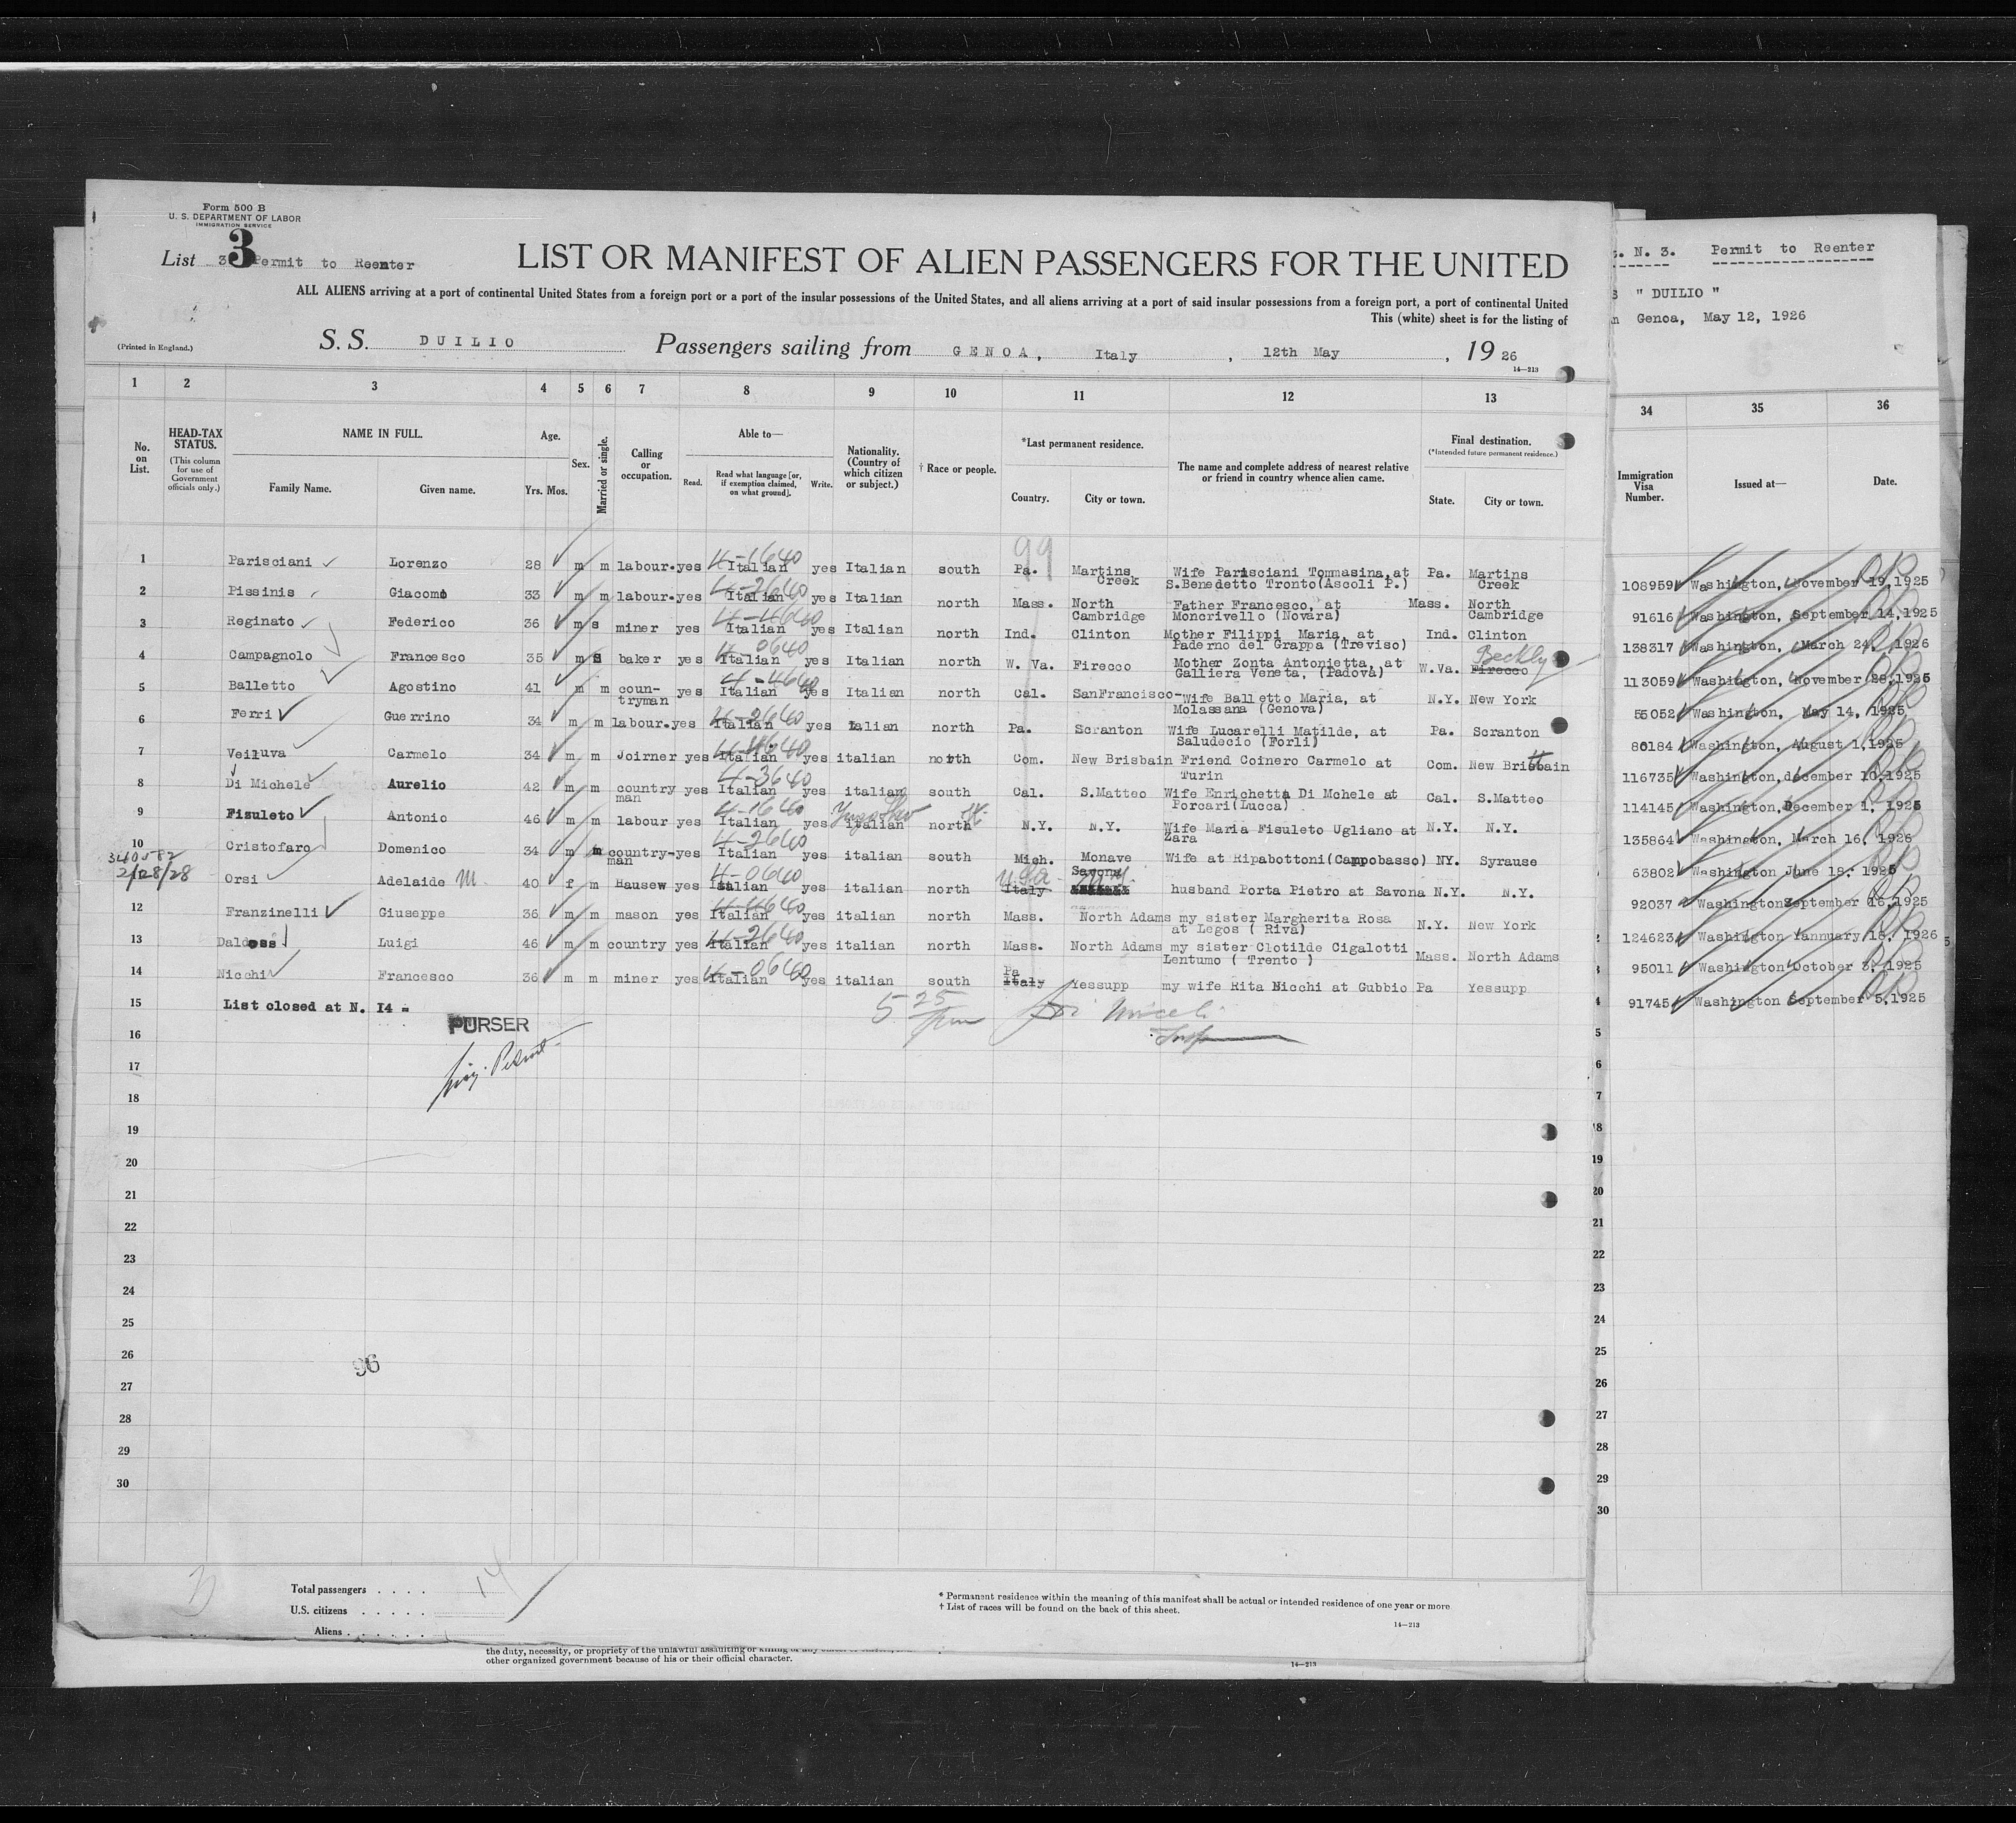 Form 500 B
U. S. DEPARTMENT OF LABOR
IMMIGRATION SERVICE
List 3 3 Permit to Reenter
LIST OR MANIFEST OF ALIEN PASSENGERS FOR THE UNITED
ALL ALIENS arriving at a port of continental United States from a foreign port or a port of the insular possessions of the United States, and all aliens arriving at a port of said insular possessions from a foreign port, a port of continental United
This (white) sheet is for the listing of
(Printed in England.)
S. S. DUILIO Passengers sailing from GENOA, Italy , 12th May , 19 26
14—213
N. 3. Permit to Reenter
" DUILIO "
Genoa, May 12, 1926
1 2 3 4 5 6 7 8 9 10 11 12 13
34 35 36
No. on List.
HEAD-TAX STATUS.
(This column for use of Government officials only.)
NAME IN FULL.
Family Name. Given name.
Age.
Yrs. Mos.
Sex.
Married or single.
Calling or occupation.
Able to—
Read. Read what language [or, if exemption claimed, on what ground]. Write.
Nationality. (Country of which citizen or subject.)
† Race or people.
*Last permanent residence.
Country. City or town.
The name and complete address of nearest relative or friend in country whence alien came.
Final destination.
(*Intended future permanent residence.)
State. City or town.
Immigration Visa Number.
Issued at—
Date.
99
1 Parisciani Lorenzo 28 m m labour. yes 4-1640 Italian yes Italian south Pa. Martins Creek Wife Parisciani Tommasina, at S.Benedetto Tronto(Ascoli P.) Pa. Martins Creek 108959 Washington, November 19, 1925
2 Pissinis Giacomo 33 m m labour. yes 4-2640 Italian yes Italian north Mass. North Cambridge Father Francesco, at Moncrivello (Novara) Mass. North Cambridge 91616 Washington, September 14, 1925
3 Reginato Federico 36 m s miner yes 4-4640 Italian yes Italian north Ind. Clinton Mother Filippi Maria, at Paderno del Grappa (Treviso) Ind. Clinton 138317 Washington, March 24, 1926
4 Campagnolo Francesco 35 m S baker yes 4-0640 Italian yes Italian north W. Va. Firecco Mother Zonta Antonietta, at Galliera Veneta, (Padova) W.Va. Firecco Beckly 113059 Washington, November 28, 1925
5 Balletto Agostino 41 m m coun-tryman yes 4-4640 Italian yes Italian north Cal. SanFrancisco- Wife Balletto Maria, at Molassana (Genova) N.Y. New York 55052 Washington, May 14, 1925
6 Ferri Guerrino 34 m m labour. yes 4-2640 Italian yes Italian north Pa. Scranton Wife Lucarelli Matilde, at Saludecio (Forli) Pa. Scranton 80184 Washington, August 1, 1925
7 Veiluva Carmelo 34 m m Joirner yes Italian yes italian north Com. New Brisbain Friend Coinero Carmelo at Turin Com. New Brisbain 116735 Washington, december 10, 1925
8 Di Michele Aurelio 42 m m country man yes 4-3640 Italian yes italian south Cal. S.Matteo Wife Enrichetta Di Mchele at Porcari(Lucca) Cal. S.Matteo 114145 Washington, December 1, 1925
9 Fisuleto Antonio 46 m m labour yes 4-1640 Italian yes italian north N.Y. N.Y. Wife Maria Fisuleto Ugliano at Zara N.Y. N.Y. 135864 Washington, March 16, 1926
10 Cristofaro Domenico 34 m m country-man yes 4-2640 Italian yes italian south Mich. Monave Wife at Ripabottoni(Campobasso) NY. Syrause 63802 Washington June 18, 1925
2/28/28 Orsi Adelaide M. 40 f m Hausew yes 4-0640 Italian yes italian north Italy Savona husband Porta Pietro at Savona N.Y. N.Y. 92037 Washington September 16, 1925
12 Franzinelli Giuseppe 36 m m mason yes 4-4640 Italian yes italian north Mass. North Adams my sister Margherita Rosa at Legos ( Riva) N.Y. New York 124623 Washington Yannuary 18, 1926
13 Daldoss Luigi 46 m m country yes 4-2640 Italian yes italian north Mass. North Adams my sister Clotilde Cigalotti Lentumo ( Trento ) Mass. North Adams 95011 Washington October 3, 1925
14 Nicchi Francesco 36 m m miner yes 4-0640 Italian yes italian south Pa Italy Yessupp my wife Rita Nicchi at Gubbio Pa Yessupp 91745 Washington September 5, 1925
15 List closed at N. I4 =
PURSER
5 25
16
17
18
19
20
21
22
23
24
25
26
96
27
28
29
30
Total passengers . . . . 14
U.S. citizens . . . . .
Aliens . . . . . .
* Permanent residence within the meaning of this manifest shall be actual or intended residence of one year or more
† List of races will be found on the back of this sheet.
14—213
the duty, necessity, or propriety of the unlawful assaulting or killing of any
other organized government because of his or their official character.
14—213